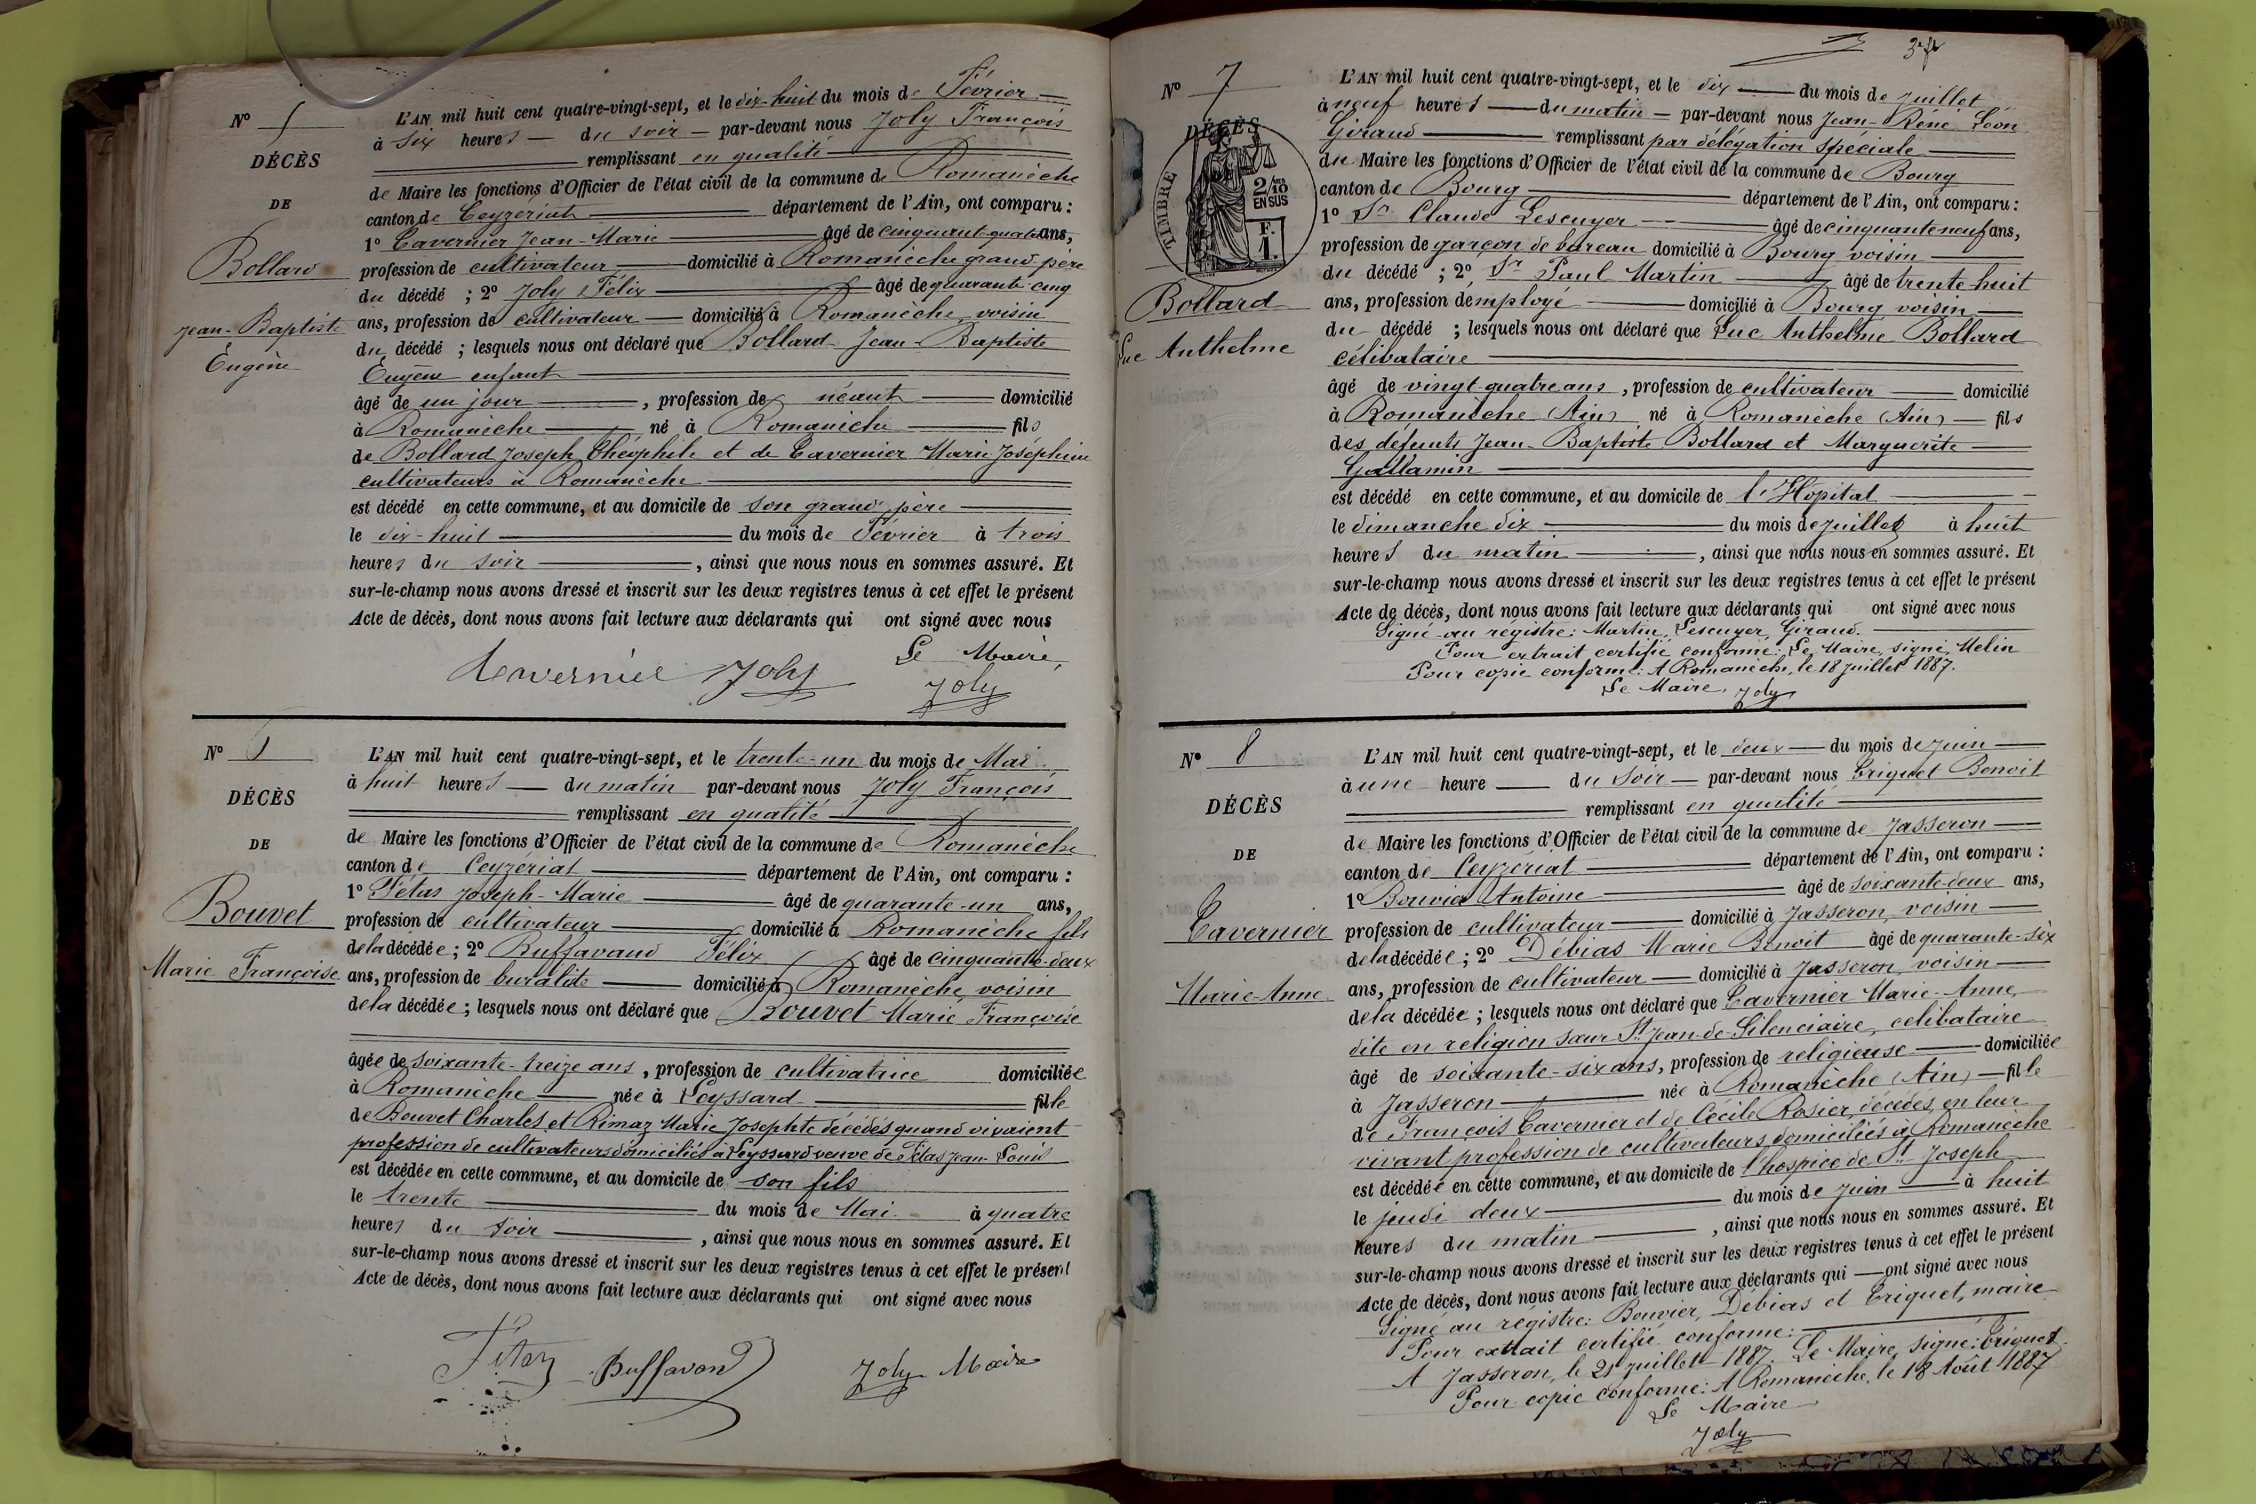 Nº 5
DÉCÈS
DE
Bollard
Jean-Baptiste
Eugène
L'AN mil huit cent quatre-vingt-sept, et le dix-huit du mois de Février
à six heures du soir par-devant nous Joly François
remplissant en qualité
de Maire les fonctions d'Officier de l'état civil de la commune de Romanèche
canton de Ceyzériat département de l'Ain, ont comparu :
1º Tavernier Jean-Marie âgé de cinquante-quatre ans,
profession de cultivateur domicilié à Romanèche grand père
du décédé ; 2º Joly Félix âgé de quarante-cinq
ans, profession de cultivateur domicilié à Romanèche, voisin
du décédé ; lesquels nous ont déclaré que Bollard Jean-Baptiste
Eugène enfant
âgé de un jour , profession de néant domicilié
à Romanèche né à Romanèche fils
de Bollard Joseph Théophile et de Tavernier Marie Joséphine
cultivateurs à Romanèche
est décédé en cette commune, et au domicile de son grand père
le dix-huit du mois de Février à trois
heures du soir , ainsi que nous nous en sommes assuré. Et
sur-le-champ nous avons dressé et inscrit sur les deux registres tenus à cet effet le présent
Acte de décès, dont nous avons fait lecture aux déclarants qui ont signé avec nous
Le Maire,
Tavernier Joly
Joly
Nº
DÉCÈS
DE
Bouvet
Marie Françoise
L'AN mil huit cent quatre-vingt-sept, et le trente-un du mois de Mai
à huit heures du matin par-devant nous Joly François
remplissant en qualité
de Maire les fonctions d'Officier de l'état civil de la commune de Romanèche
canton de Ceyzériat département de l'Ain, ont comparu :
1º Fétas Joseph-Marie âgé de quarante-un ans,
profession de cultivateur domicilié à Romanèche fils
de la décédée ; 2º Buffavand Félix âgé de cinquante-deux
ans, profession de buraliste domicilié à Romanèche, voisin
de la décédée ; lesquels nous ont déclaré que Bouvet Marie Françoise
âgée de soixante-treize ans , profession de cultivatrice domiciliée
à Romanèche née à Leyssard fille
de Bouvet Charles et Rimaz Marie Josephte décédés quand vivaient
profession de cultivateurs domiciliés à Leyssard veuve de Fétas Jean-Louis
est décédée en cette commune, et au domicile de son fils
le trente du mois de Mai à quatre
heures du soir , ainsi que nous nous en sommes assuré. Et
sur-le-champ nous avons dressé et inscrit sur les deux registres tenus à cet effet le présent
Acte de décès, dont nous avons fait lecture aux déclarants qui ont signé avec nous
Fétaz Buffavand Joly Maire
Nº 7
DÉCÈS
TIMBRE
2/10
EN SUS
F.
1.
Bollard
Luc Anthelme
L'AN mil huit cent quatre-vingt-sept, et le dix du mois de Juillet
à neuf heures du matin par-devant nous Jean-René Léon
Giraud remplissant par délégation spéciale
du Maire les fonctions d'Officier de l'état civil de la commune de Bourg
canton de Bourg département de l'Ain, ont comparu :
1º Sr Claude Lescuyer âgé de cinquante neuf ans,
profession de garçon de bureau domicilié à Bourg voisin
du décédé ; 2º Sr Paul Martin âgé de trente-huit
ans, profession d'employé domicilié à Bourg voisin
du décédé ; lesquels nous ont déclaré que Luc Anthelme Bollard
célibataire
âgé de vingt-quatre ans , profession de cultivateur domicilié
à Romanèche (Ain) né à Romanèche (Ain) fils
des défunts Jean-Baptiste Bollard et Marguerite
Gallamin
est décédé en cette commune, et au domicile de l'Hôpital
le dimanche dix du mois de juillet à huit
heures du matin , ainsi que nous nous en sommes assuré. Et
sur-le-champ nous avons dressé et inscrit sur les deux registres tenus à cet effet le présent
Acte de décès, dont nous avons fait lecture aux déclarants qui ont signé avec nous
Signé au régistre : Martin, Lescuyer, Giraud.
Pour extrait certifié conforme : Le Maire, signé, Melin
Pour copie conforme : A Romanèche, le 18 juillet 1887.
Le Maire, Joly
Nº 8
DÉCÈS
DE
Tavernier
Marie-Anne
L'AN mil huit cent quatre-vingt-sept, et le deux du mois de juin
à une heure du soir par-devant nous Triquet Benoit
remplissant en qualité
de Maire les fonctions d'Officier de l'état civil de la commune de Jasseron
canton de Ceyzériat département de l'Ain, ont comparu :
1º Bouvier Antoine âgé de soixante-deux ans,
profession de cultivateur domicilié à Jasseron, voisin
de la décédée ; 2º Débias Marie Benoit âgé de quarante-six
ans, profession de cultivateur domicilié à Jasseron, voisin
de la décédée ; lesquels nous ont déclaré que Tavernier Marie-Anne,
dite en religion sœur St Jean de Silenciaire, célibataire
âgé de soixante-six ans, profession de religieuse domiciliée
à Jasseron née à Romanèche (Ain) fille
de François Tavernier et de Cécile Rosier, décédés, en leur
vivant profession de cultivateurs domiciliés à Romanèche
est décédée en cette commune, et au domicile de l'hospice de St Joseph
le jeudi deux du mois de juin à huit
heures du matin , ainsi que nous nous en sommes assuré. Et
sur-le-champ nous avons dressé et inscrit sur les deux registres tenus à cet effet le présent
Acte de décès, dont nous avons fait lecture aux déclarants qui ont signé avec nous
Signé au régistre : Bouvier, Débias et Triquet, maire
Pour extrait certifié conforme :
A Jasseron, le 21 juillet 1887. Le Maire, signé : Triquet
Pour copie conforme : A Romanèche, le 18 Août 1887
Le Maire
Joly